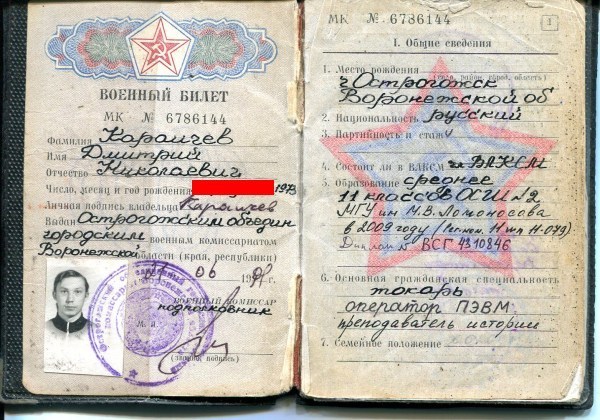 ВОЕННЫЙ БИЛЕТ
МК № 6786144
Фамилия Караичев
Имя Дмитрий
Отчество Николаевич
Число, месяц и год рождения 1973
Личная подпись владельца Караичев
Выдан Острогожским объедин
городским военным комиссариатом
Воронежской области (края, республики)
06 г.
ВОЕННЫЙ КОМИССАР
подполковник
М. п.
(звание, подпись)
МК № 6786144
1
I. Общие сведения
1. Место рождения
(село, район, город, область)
г Острогожск
Воронежской об
2. Национальность русский
3. Партийность и стаж
4. Состоит ли в ВЛКСМ чл ВЛКСМ
5. Образование среднее
11 классов ОСШ №2
МГУ им М.В. Ломоносова
в 2009 году
Диплом ВСГ 4310846
6. Основная гражданская специальность
токарь
оператор ПЭВМ
преподаватель истории
7. Семейное положение